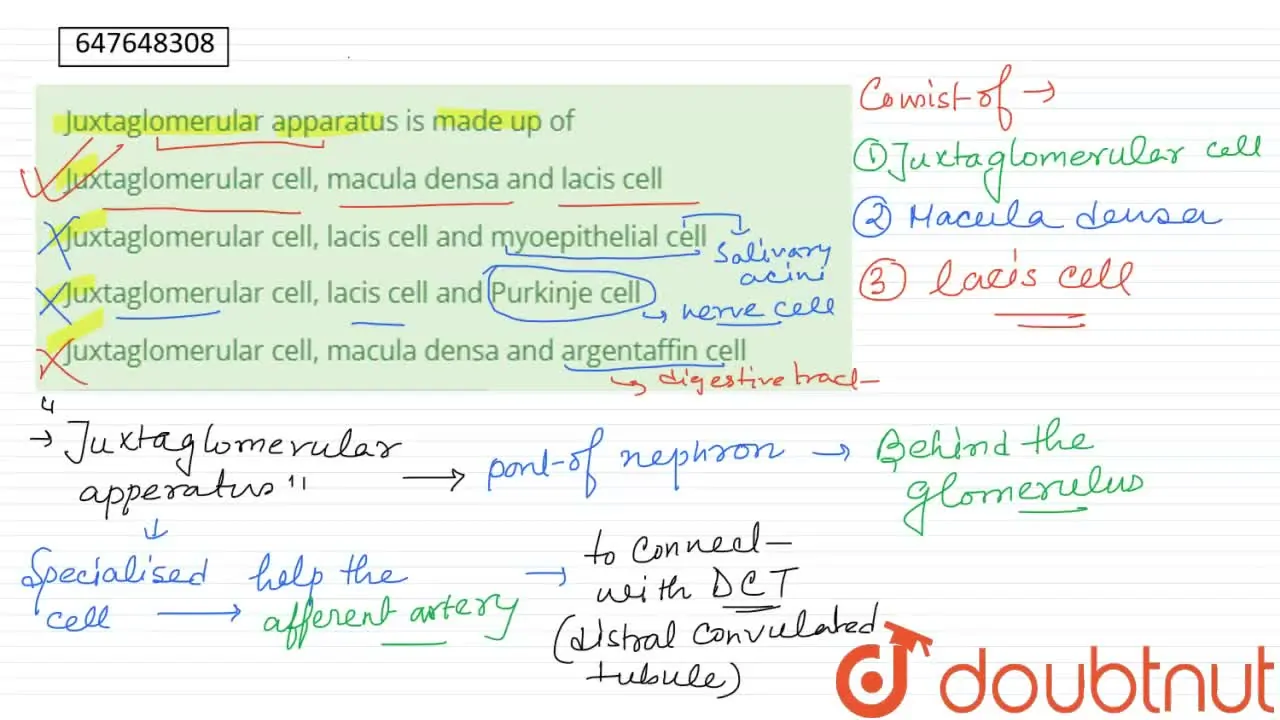 647648308
Juxtaglomerular apparatus is made up of
Juxtaglomerular cell, macula densa and lacis cell
Juxtaglomerular cell, lacis cell and myoepithelial cell
Juxtaglomerular cell, lacis cell and Purkinje cell
Juxtaglomerular cell, macula densa and argentaffin cell
Salivary
acini
nerve cell
digestive tract
Consist of →
① Juxtaglomerular cell
② Macula densa
③ lacis cell
→ "Juxtaglomerular
apperatus"
→ part of nephron → Behind the
glomerulus
↓
Specialised
cell → help the
afferent artery
→ to connect
with DCT
(distral convulated
tubule)
doubtnut